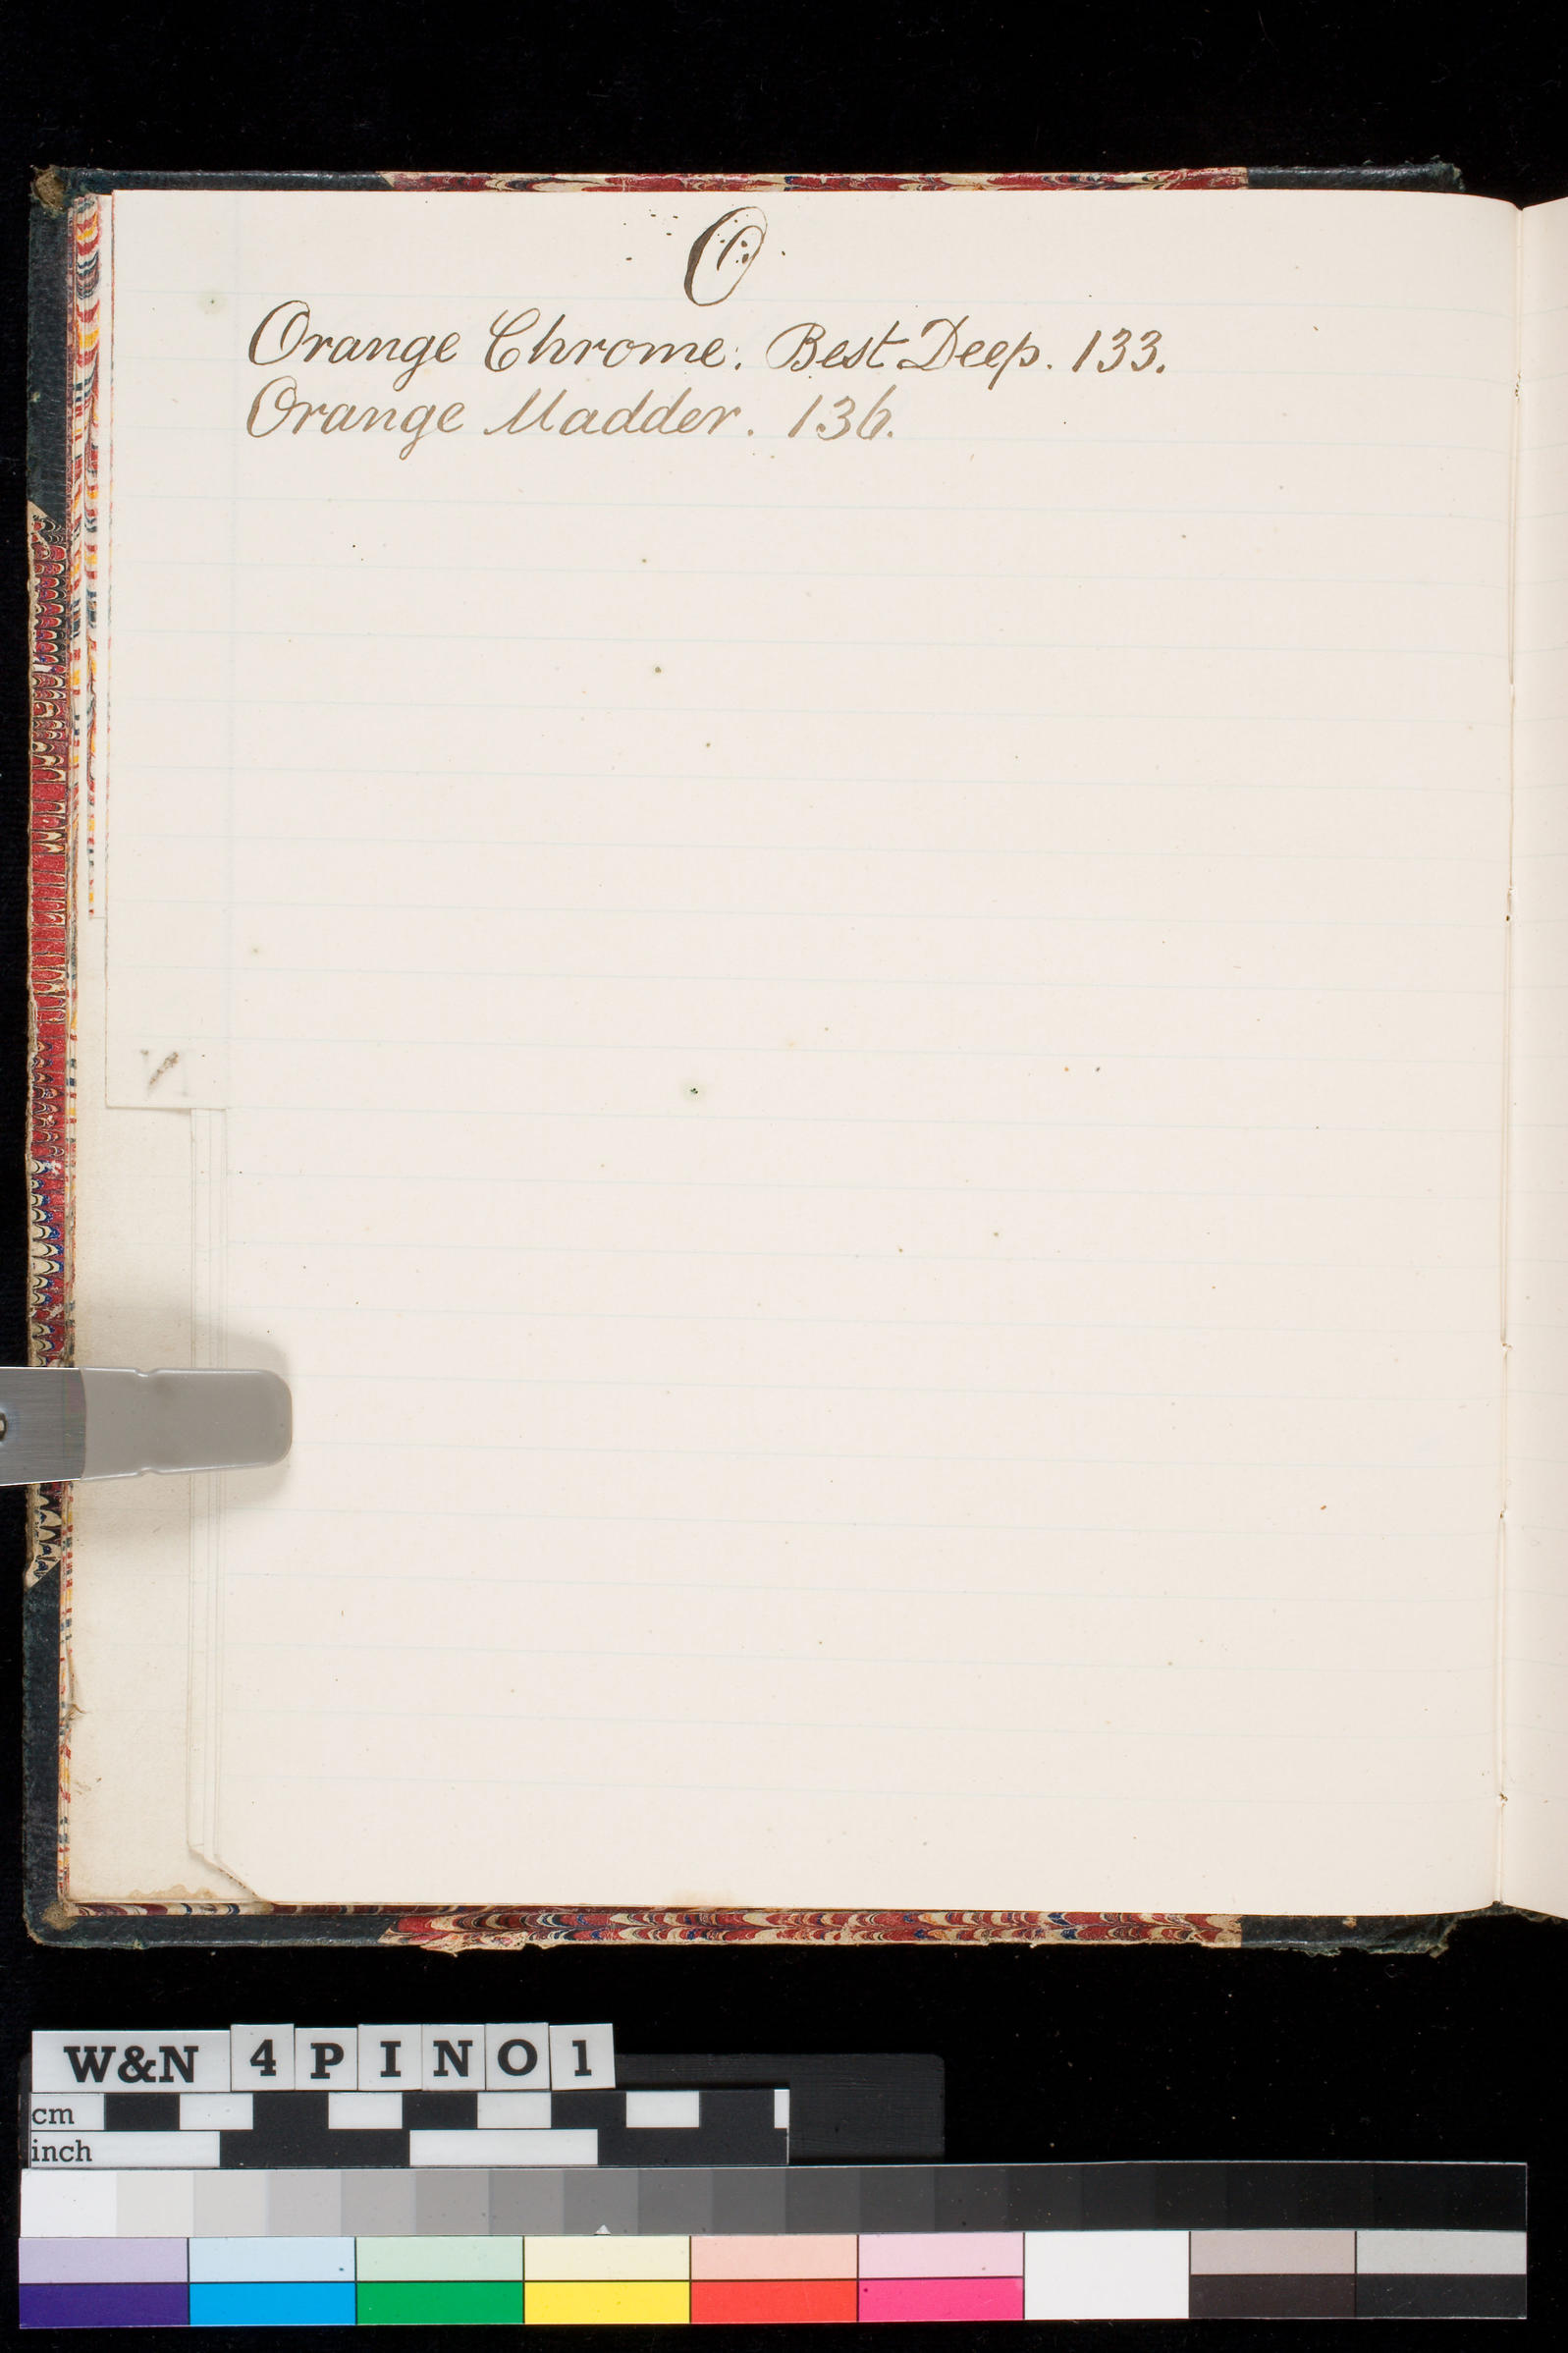 O
Orange Chrome. Best Deep. 133.
Orange Madder. 136.
W&N 4 P I N O 1
cm
inch